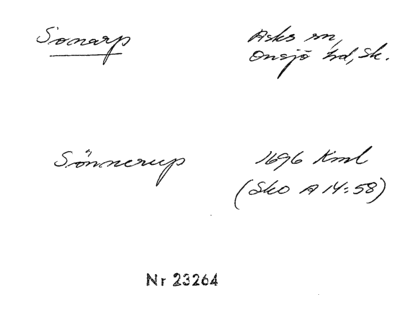 Sonarp
Asks sn,
Onsjö hd, Sk.
Sönnerup
1696 Kml
(Sko A 14:58)
Nr 23264